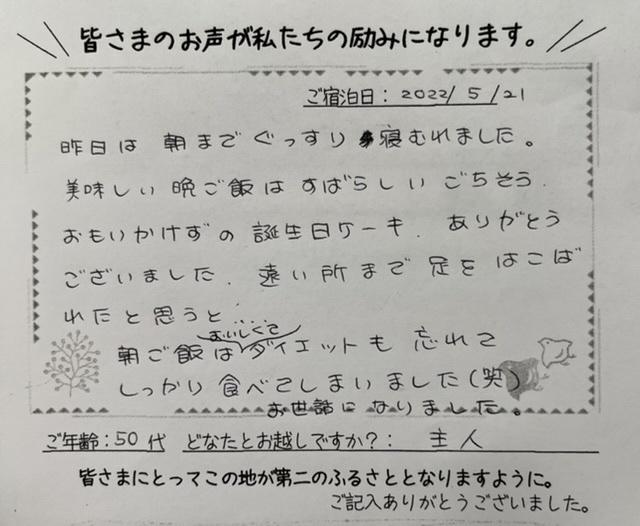 皆さまのお声が私たちの励みになります。
ご宿泊日：2022/5/21
昨日は朝までぐっすり寝むれました。
美味しい晩ご飯はすばらしいごちそう.
おもいかけずの誕生日ケーキ. ありがとう
ございました. 遠い所まで足をはこば
れたと思うと....
おいしくて
朝ご飯はダイエットも忘れて
しっかり食べてしまいました(笑)
お世話になりました。
ご年齢：50代 どなたとお越しですか？： 主人
皆さまにとってこの地が第二のふるさととなりますように。
ご記入ありがとうございました。